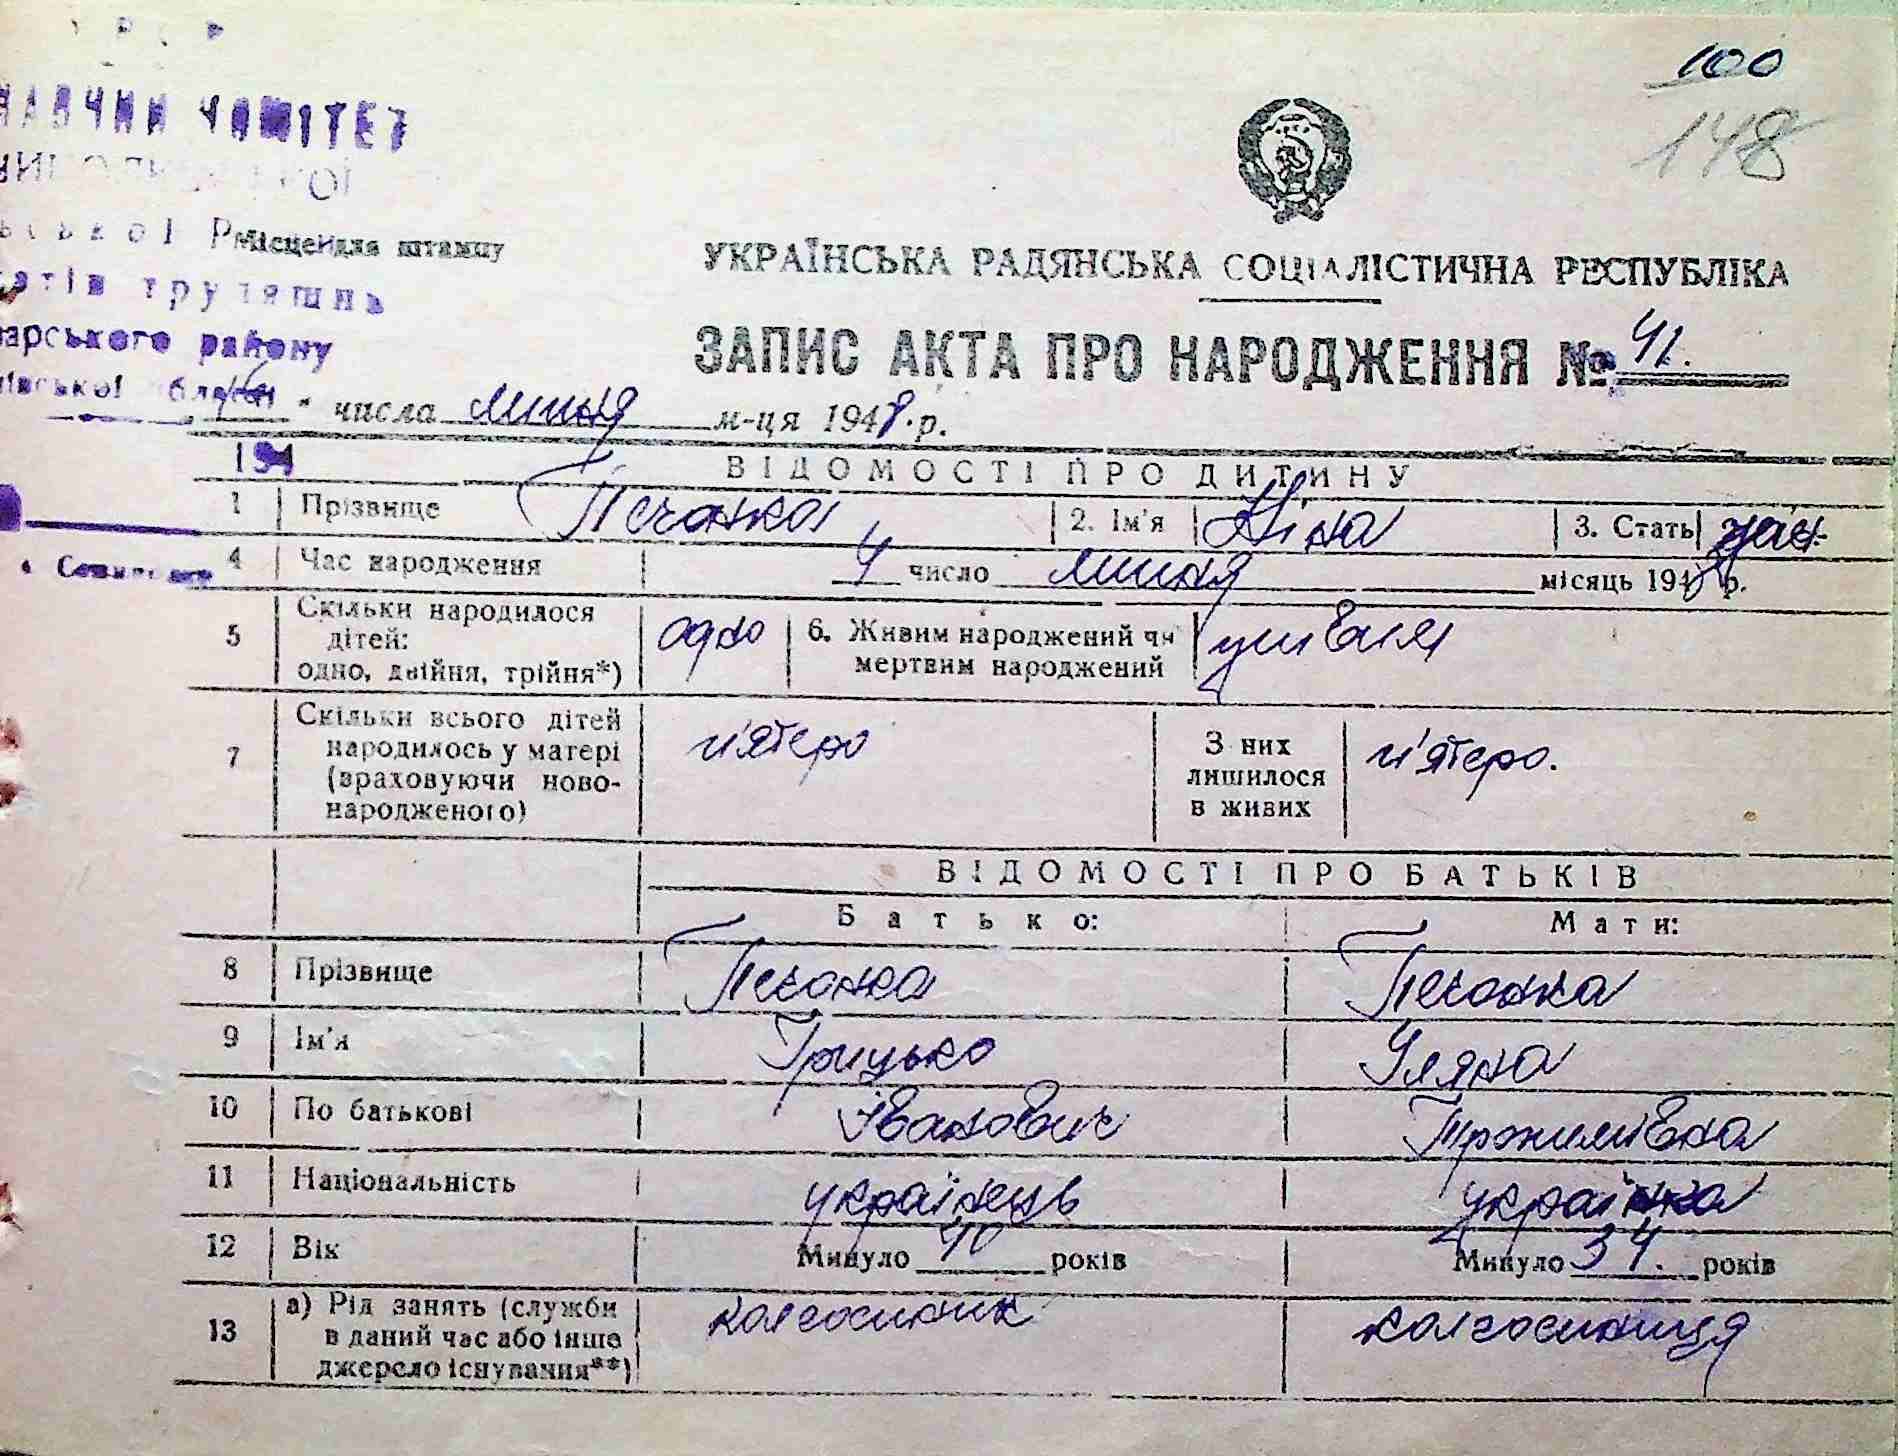 100
148
НАВЧИЙ КОМІТЕТ
Місце для штампу
УКРАЇНСЬКА РАДЯНСЬКА СОЦІАЛІСТИЧНА РЕСПУБЛІКА
трудящих
ЗАПИС АКТА ПРО НАРОДЖЕННЯ № 41.
району
" числа липня м-ця 1948 р.
194
ВІДОМОСТІ ПРО ДИТИНУ
1 Прізвище Печонка 2. Ім'я Ніна 3. Стать жін.
4 Час народження 4 число липня місяць 1948 р.
5 Скільки народилося дітей: одно, двійня, трійня*) одно 6. Живим народжений чи мертвим народжений живим
7 Скільки всього дітей народилось у матері (враховуючи новонародженого) п'ятеро З них лишилося в живих п'ятеро.
ВІДОМОСТІ ПРО БАТЬКІВ
Батько: Мати:
8 Прізвище Печонка Печонка
9 Ім'я Грицько Уляна
10 По батькові Іванович Трохимівна
11 Національність українець українка
12 Вік Минуло 40 років Минуло 34. років
13 а) Рід занять (служби в даний час або інше джерело існування**) колгоспник колгоспниця